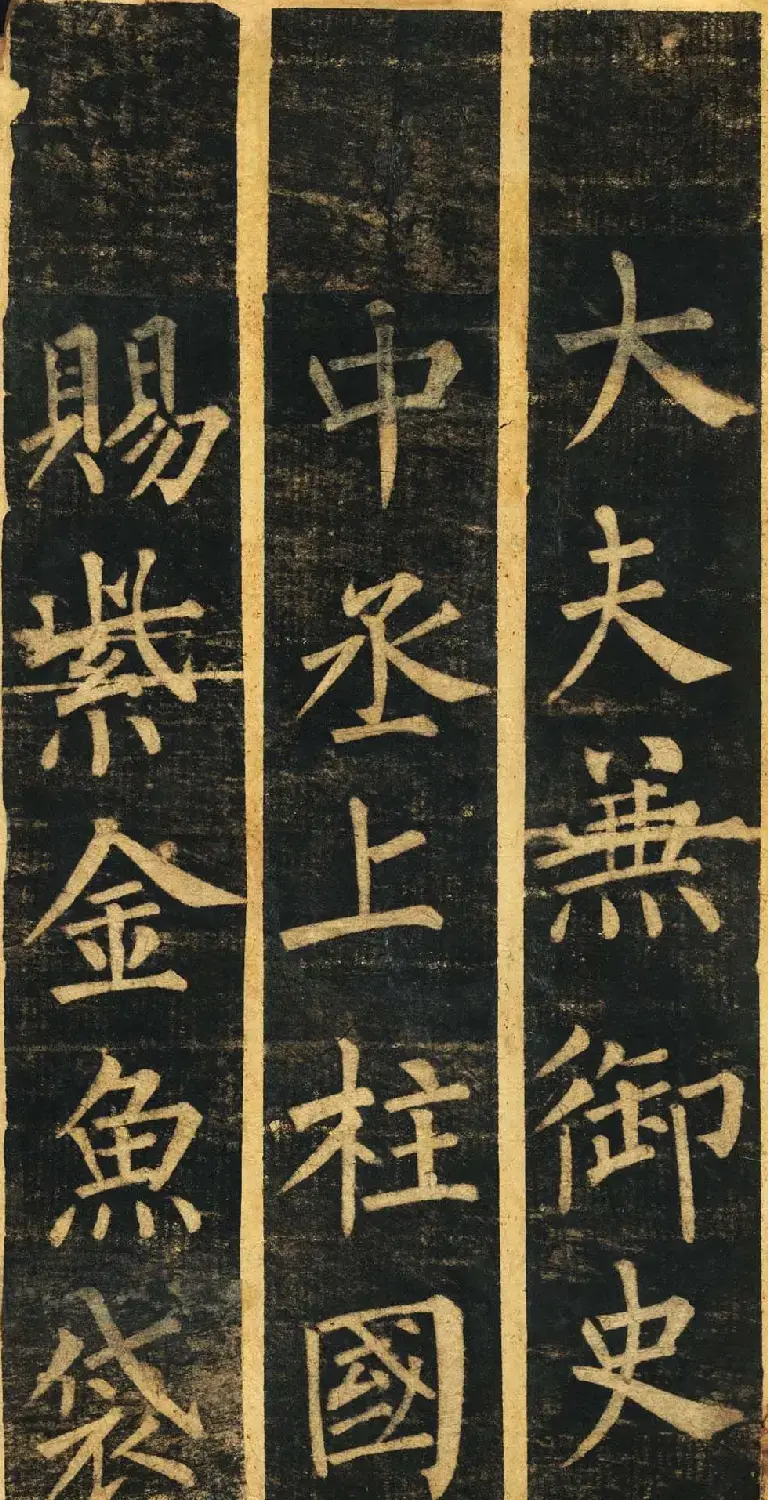 大夫兼御史
中丞上柱國
賜紫金魚袋